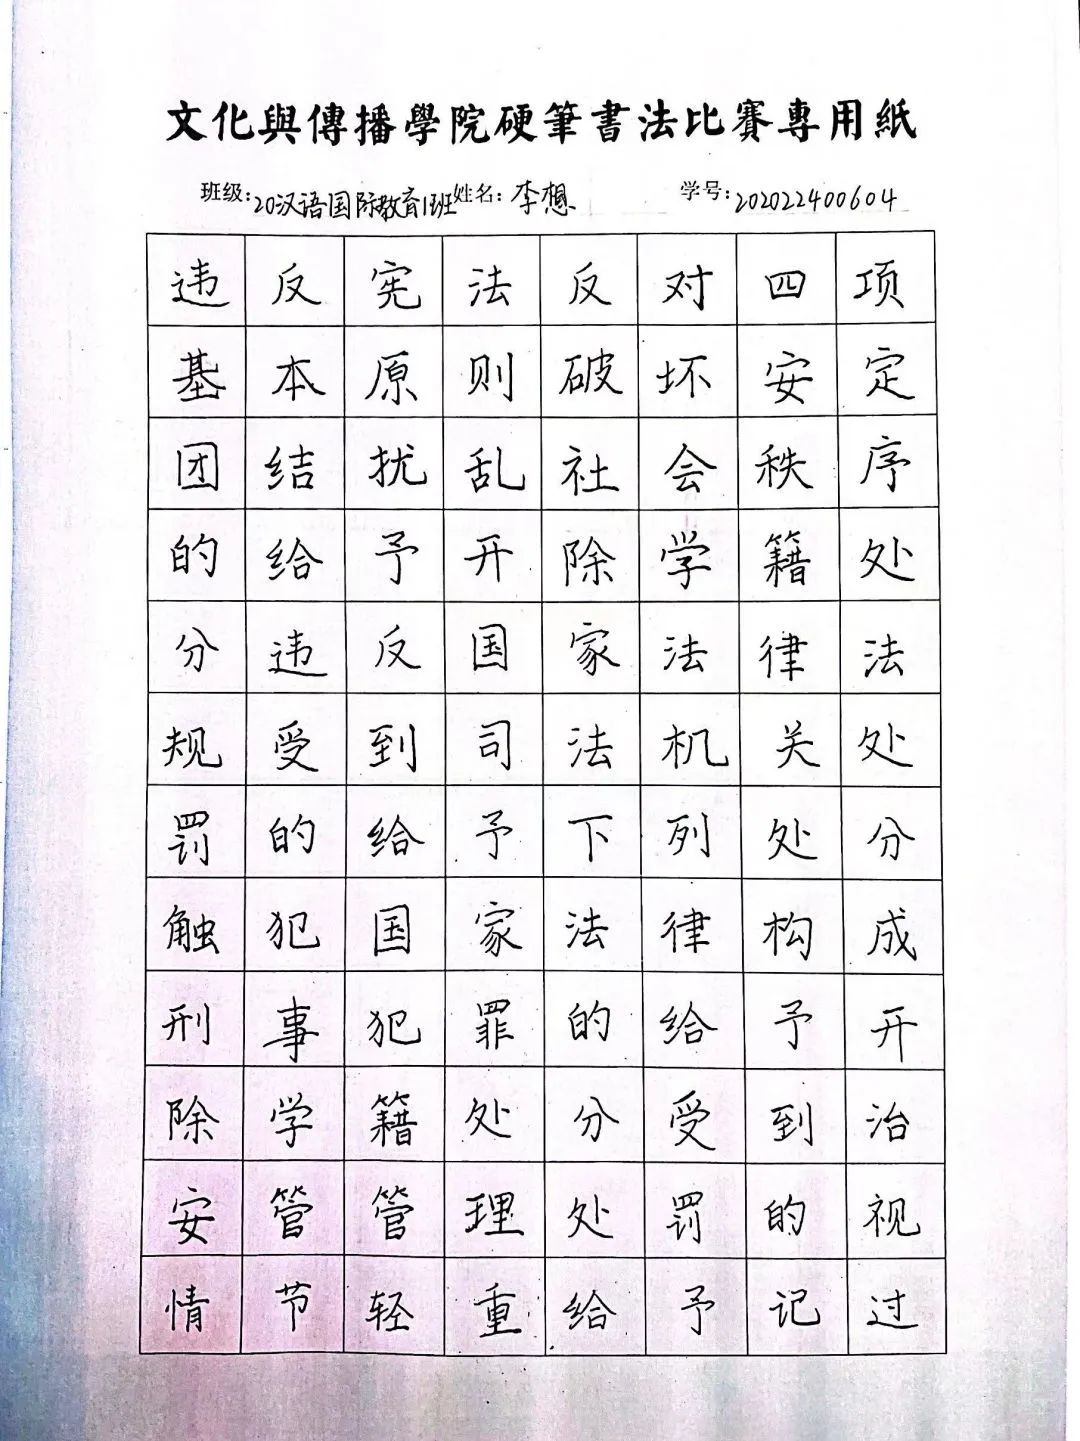 文化與傳播學院硬筆書法比賽專用紙
班级:20汉语国际教育1班 姓名:李想 学号:202022400604
违反宪法反对四项
基本原则破坏安定
团结扰乱社会秩序
的给予开除学籍处
分违反国家法律法
规受到司法机关处
罚的给予下列处分
触犯国家法律构成
刑事犯罪的给予开
除学籍处分受到治
安管管理处罚的视
情节轻重给予记过